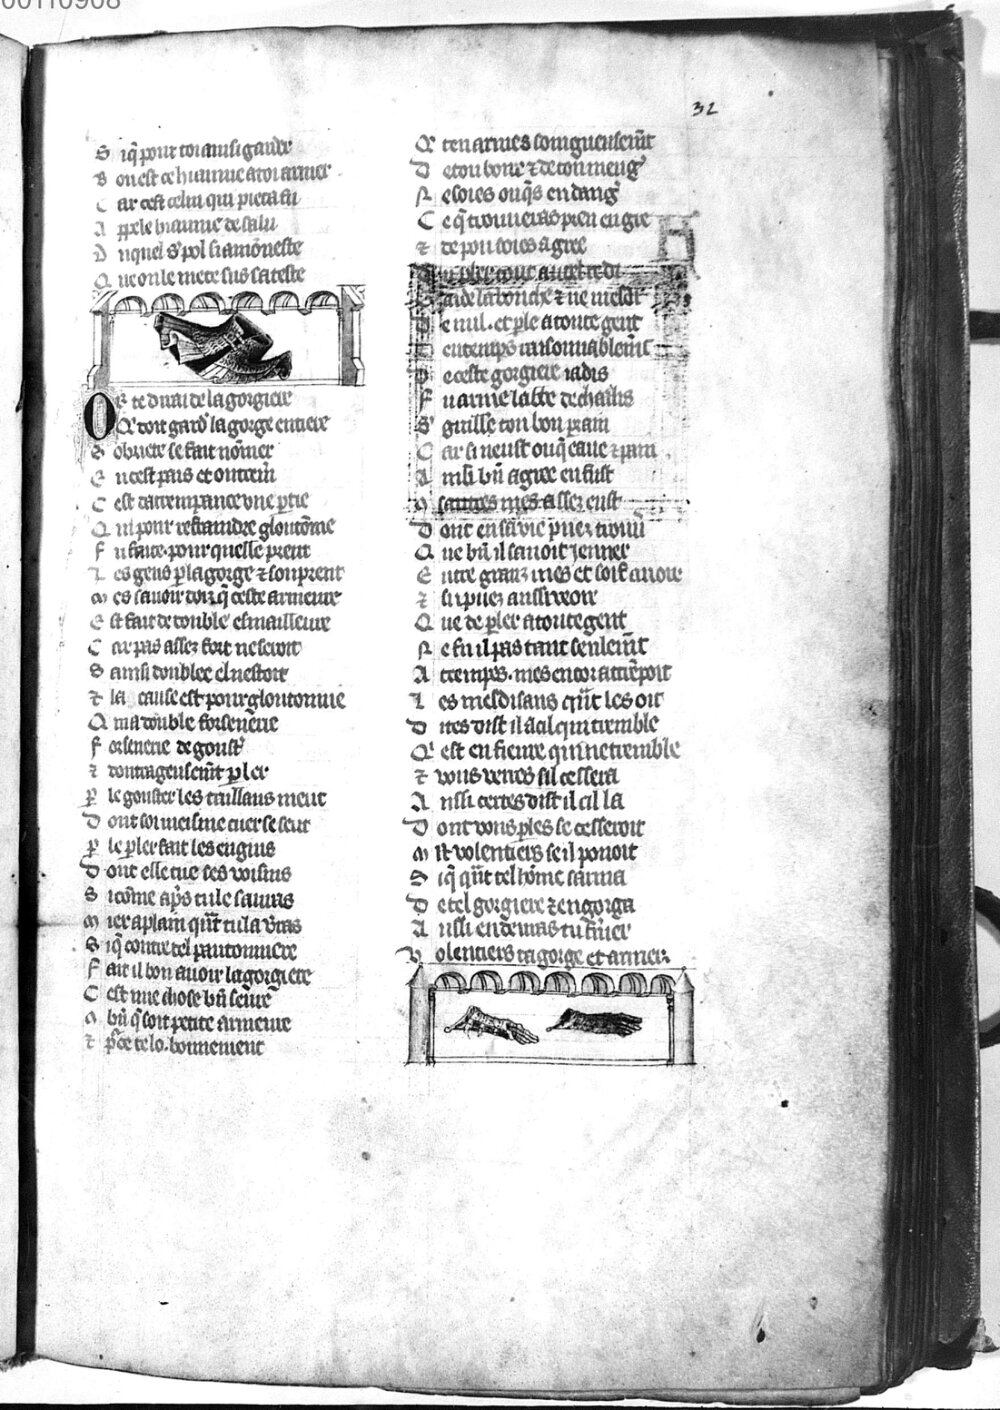 32
S iq̃ pour toi ainsi garder
B on est ce hiaume a toi armer
C ar cest celui qui pieca fu
A ppele hiaume de salu
D uquel s' pol si amõneste
Q ue on le mete sus sa teste
O R te dirai de la gorgiere
Q' doit gard' la gorge entiere
S obriete se fait nõmer
E n cest pais et outrem̃
C est dattrempance vne ptie
Q ui pour refraindre gloutõnie
F u faite. pour quelle prent
L es gens p la gorge ⁊ souprent
M es sauoir doiz q̃ ceste armeure
E st faite de double esmailleure
C ar pas assez fort ne seroit
S ainsi doublee el nestoit
⁊ la cause est pour gloutonnie
Q ui a double forsenerie
F orsenerie de goust'
⁊ doutrageusem̃t pler
P le gouster les taillans meut
D ont soi meisme tuer se seut
P le pler fait les engins
D ont elle tue ses voisins
S icõme ap̃s tu le sauras
M ier a plain qũt tu la v'ras
S iq̃ contre tel pautonniere
F ait il bon auoir la gorgiere
C est une chose bñ seure
A bñ q̃ soit petite armeure
⁊ p̃ce te lo. bonnement
Q' ten armes songneusem̃t
D e ton boire ⁊ de ton meng'
N e soies ouq̃s en dang'
C e q̃ trouueras pren en gre
⁊ de pou soies a gree
Du pler tout autel te di
de la bouche ⁊ ne mesdi
D e nul. et ple a toute gent
En temps raisonnablem̃t
D e ceste gorgiere iadis
F u arme labbe de chalis
S' guille ton bon prain
C ar si neust ouq̃ eaue ⁊ pain
A insi bñ a gree en fust
9 sautres mes assez eust
D ont en sa vie puez trouu'
Q ue bñ il sauoit ieuner
E ntre granz mes et soif auoir
⁊ si puez aussi veoir
Q ue de pler a toute gent
N e fu il pas tant seulem̃t
A ttempes. mes encor attrẽpoit
L es mesdisans qũt les oit
D ites dist il a cil qui tremble
Q' est en fieure qui ne tremble
⁊ vous verres sil cessera
A ussi certes dist il cil la
D ont vous ples se cesseroit
M lt volentiers se il pouoit
S iq̃ qũt tel hõme sarma
D e tel gorgiere ⁊ engorga
A ussi en deuras tu fm̃er
V olentiers ta gorge et armer